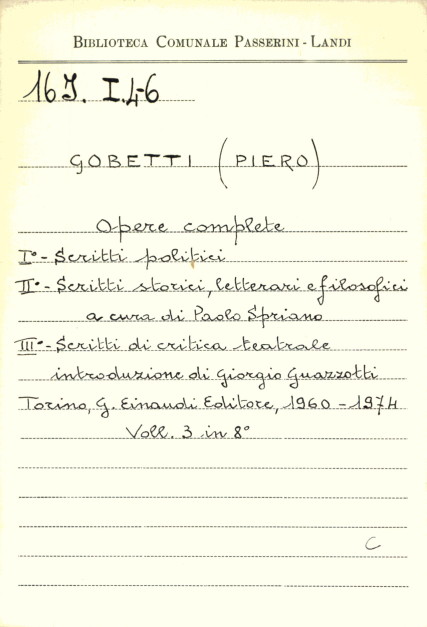 BIBLIOTECA COMUNALE PASSERINI - LANDI
16 I. I.4-6
GOBETTI (PIERO)
Opere complete
I° - Scritti politici
II° - Scritti storici, letterari e filosofici
a cura di Paolo Spriano
III° - Scritti di critica teatrale
introduzione di Giorgio Guazzotti
Torino, G. Einaudi Editore, 1960 - 1974
Voll. 3 in 8°
C